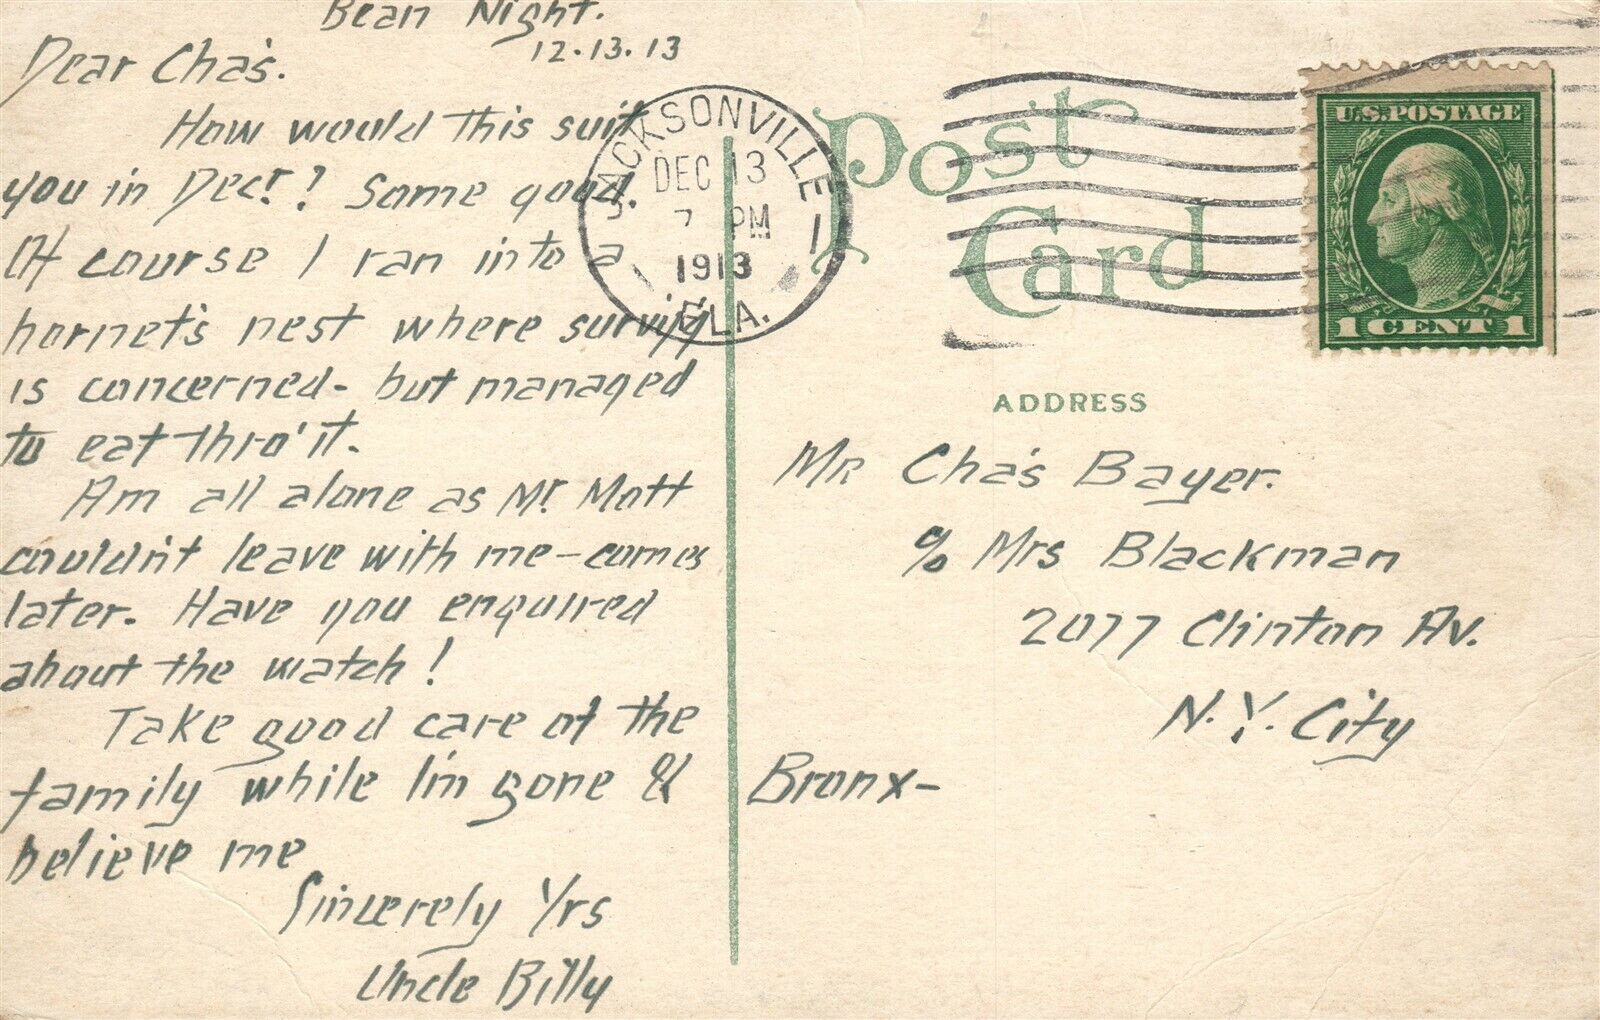 Bean Night.
12.13.13
Dear Cha's.
How would this suit
you in Decr.? Some good.
Of course I ran into a
hornet's nest where
is concerned - but managed
to eat thro' it.
Am all alone as Mr. Mott
couldn't leave with me - comes
later. Have you enquired
about the watch!
Take good care of the
family while I'm gone &
believe me
Sincerely Yrs
Uncle Billy
JACKSONVILLE
DEC 13
7 PM
1913
FLA.
1
Post
Card
U.S. POSTAGE
1 CENT 1
ADDRESS
Mr Cha's Bayer.
c/o Mrs Blackman
2077 Clinton Av.
N.Y. City
Bronx-